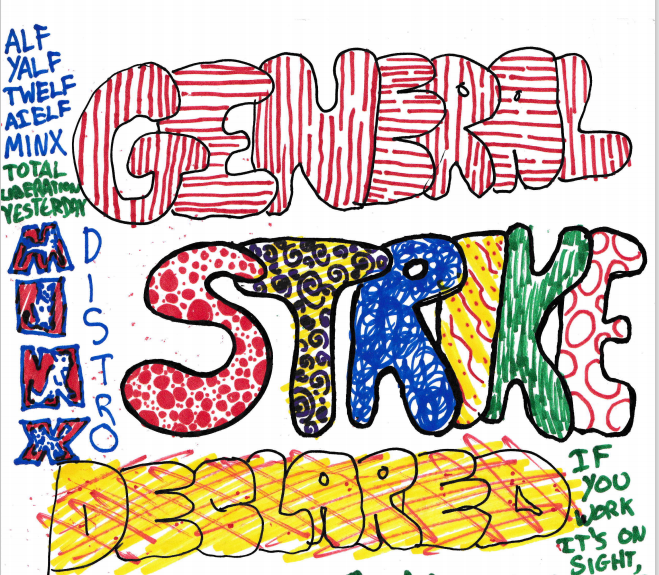 ALF
YALF
TWELF
AIELF
MINX
TOTAL
LIBERATION
YESTERDAY
MUNX
DISTRO
GENERAL
STRIKE
DECLARED
IF
YOU
WORK
IT'S ON
SIGHT,